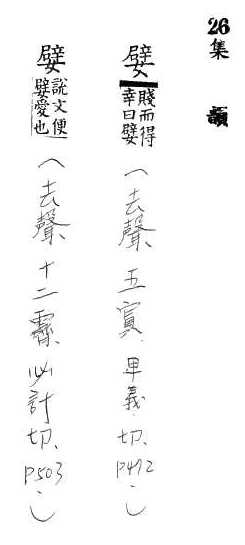 26
集韻
嬖 賤而得幸曰嬖 (去聲、五寘、卑義切、P492。)
嬖 說文便嬖愛也 (去聲、十二霽、必計切、P503。)